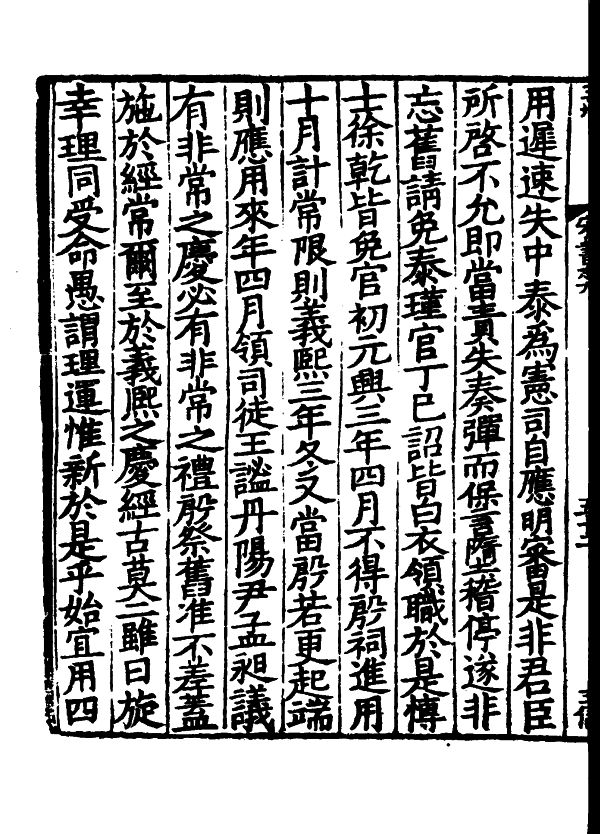 用遲速失中泰為憲司自應明審是非君臣
所啓不允即當責失奏彈而稽停遂非
忘舊請免泰瑾官丁巳詔皆白衣領職於是博
士徐乾皆免官初元興三年四月不得殷祠進用
十月計常限則義熙三年冬又當殷若更起端
則應用來年四月領司徒王謐丹陽尹孟昶議
有非常之慶必有非常之禮殷祭舊准不差蓋
施於經常爾至於義熙之慶經古莫二雖曰旋
幸理同受命愚謂理運惟新於是乎始宜用四